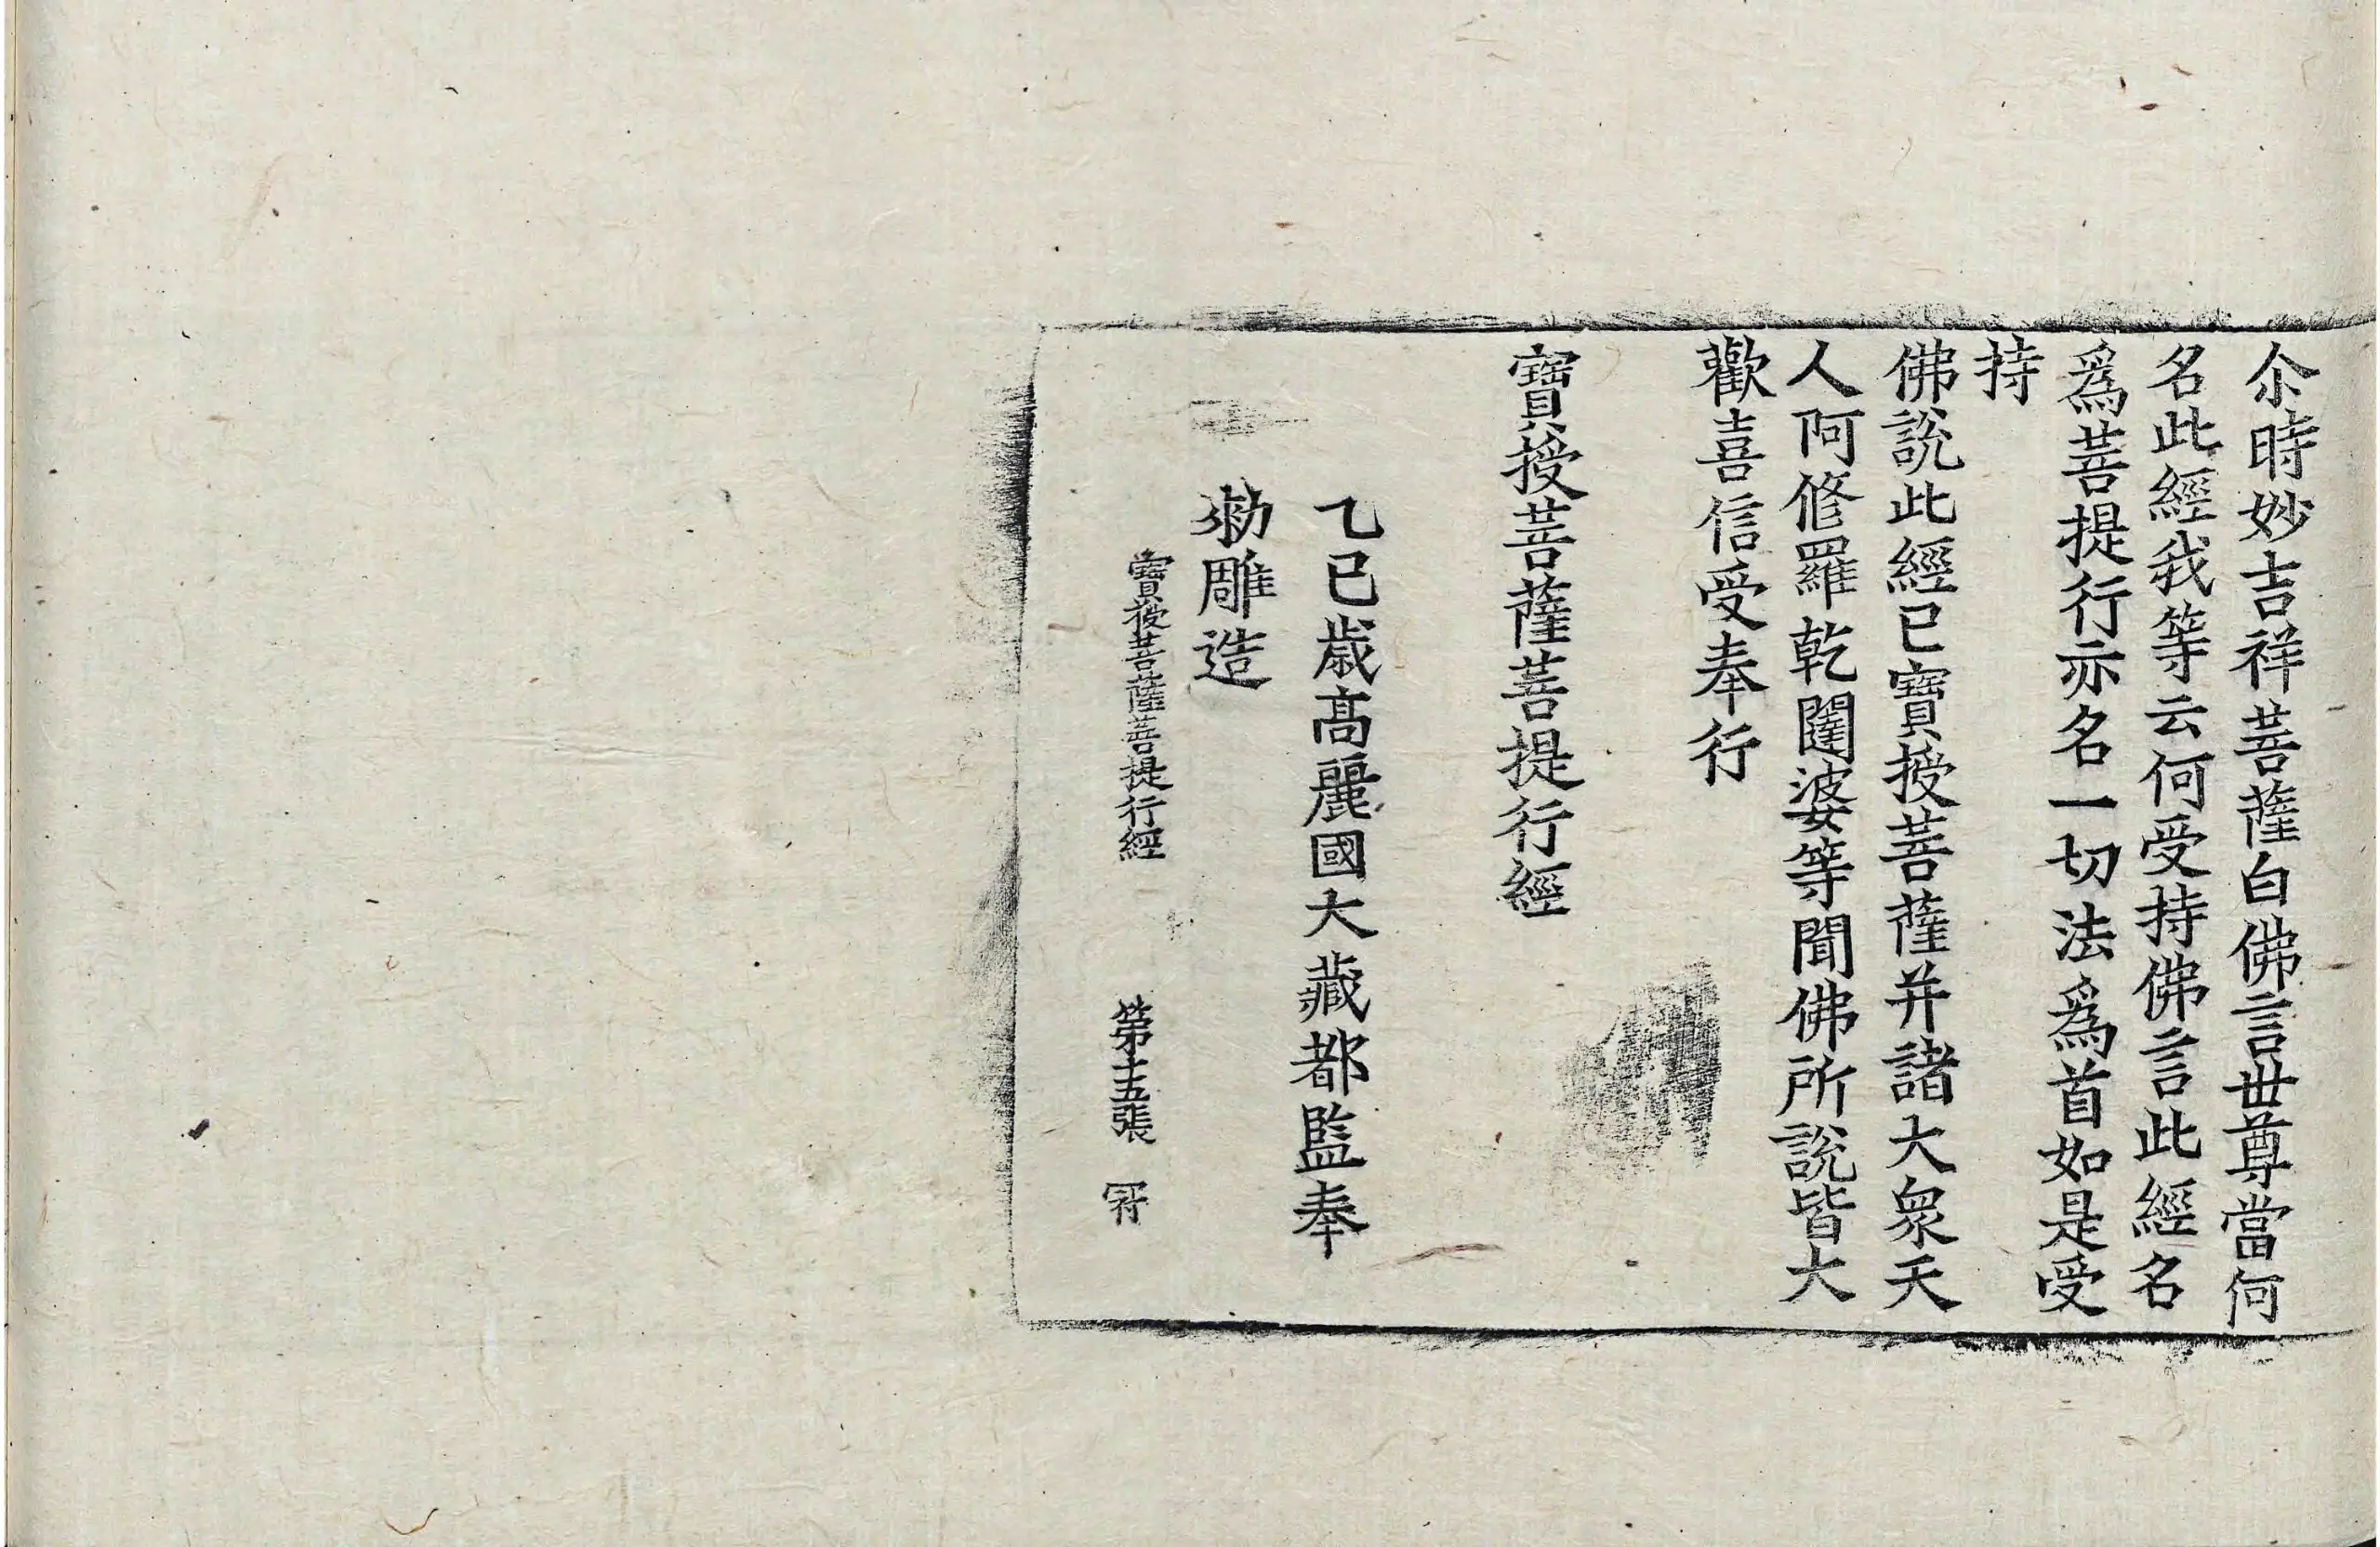 尒時妙吉祥菩薩白佛言世尊當何
名此經我等云何受持佛言此經名
爲菩提行亦名一切法爲首如是受
持
佛說此經已寶授菩薩并諸大衆天
人阿修羅乾闥婆等聞佛所說皆大
歡喜信受奉行
寶授菩薩菩提行經
乙巳歲高麗國大藏都監奉
勑雕造
寶授菩薩菩提行經 第十五張